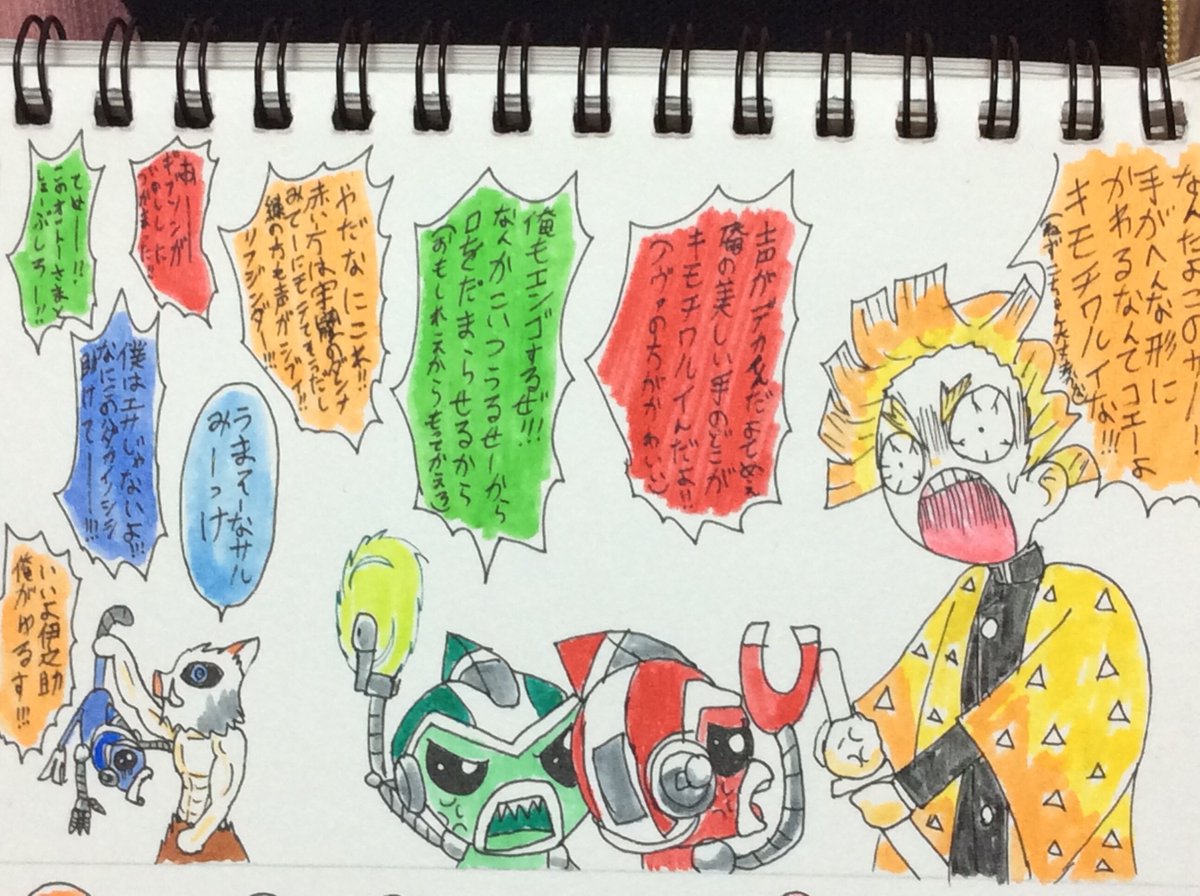 なんだよこのサルー
手がへんな形に
かわるなんてコエーよ
キモチワルイな!!!
声がデカイんだよてめぇ
俺の美しい手のどこが
キモチワルイんだよ!!
俺もエンゴするぜ!!!
なんかこいつうるせーから
口をだまらせるから
(おもしれえからもってかえる)
やだなにこれ!!
赤い方は宇髄のダンナ
みてーにモテてそうだし
緑の方も声が
あー
ギブソンが
いのししに
つかまった!!
てめー!!
このオットーさまと
しょーぶしろー!!
うまそーなサル
みーっけ
僕はエサじゃないよ!!!
なにこのハダカイノシシ
助けてー!!!
いいよ伊之助
俺がゆるす!!!